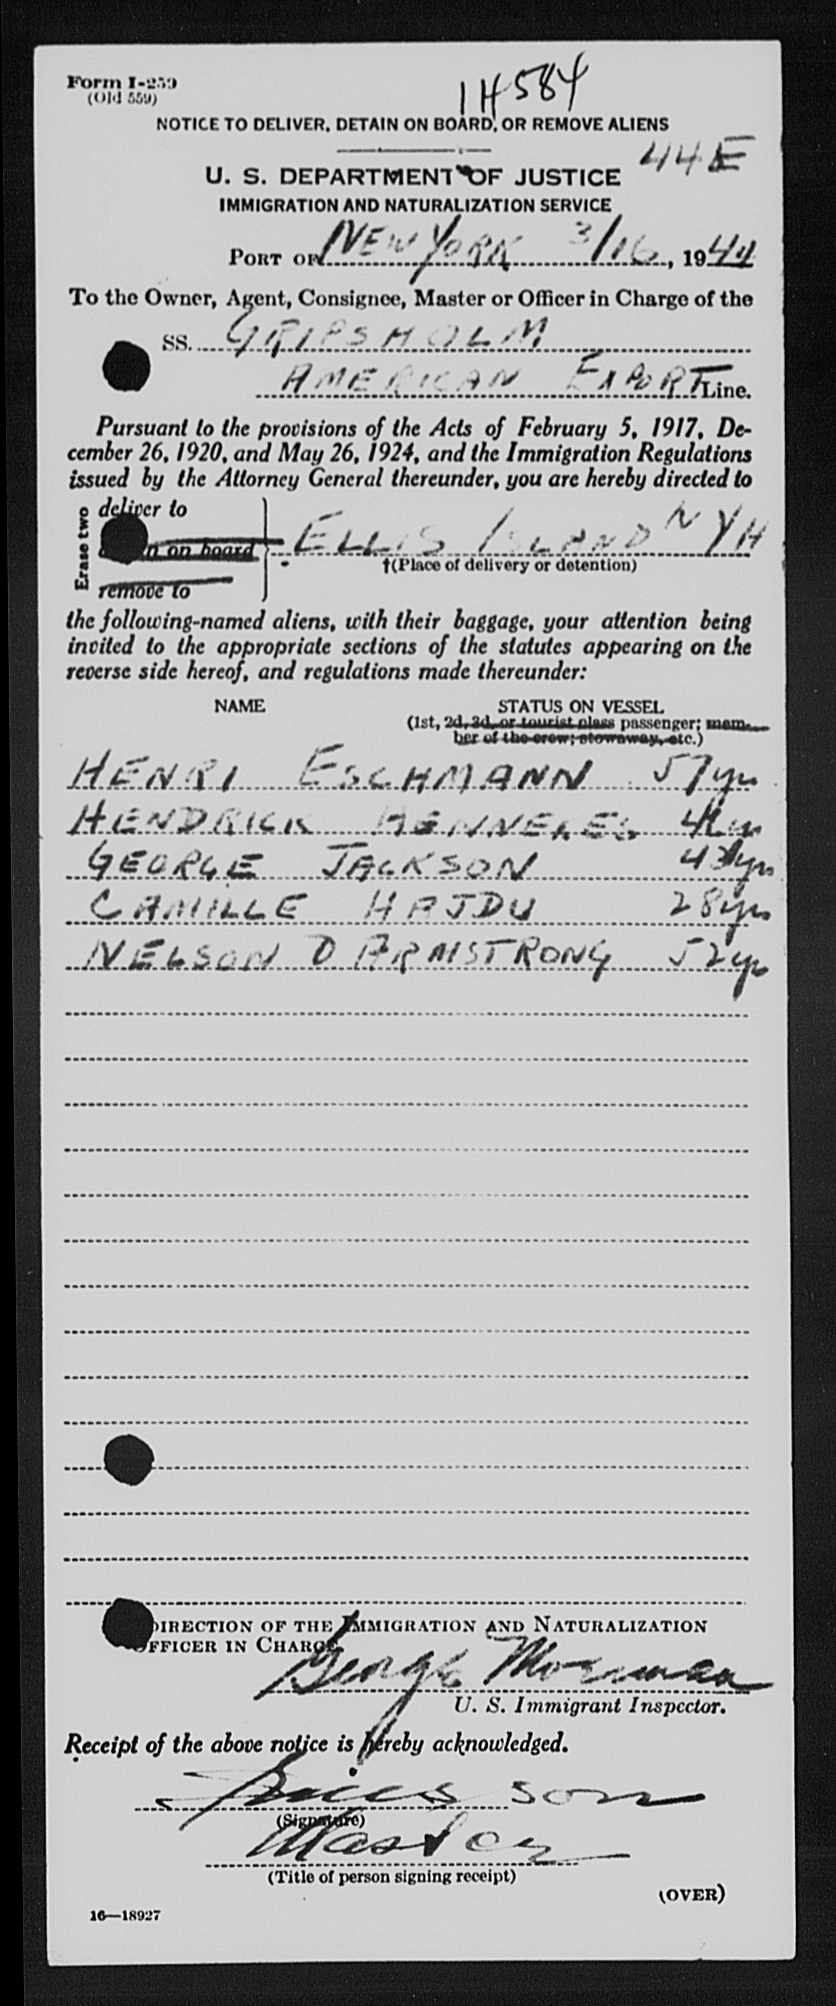 Form I-259
(Old 559)
14584
NOTICE TO DELIVER, DETAIN ON BOARD, OR REMOVE ALIENS
44E
U. S. DEPARTMENT OF JUSTICE
IMMIGRATION AND NATURALIZATION SERVICE
PORT OF NEW YORK 3/16, 1944
To the Owner, Agent, Consignee, Master or Officer in Charge of the
SS. GRIPSHOLM
AMERICAN EXPORT Line.
Pursuant to the provisions of the Acts of February 5, 1917, De-
cember 26, 1920, and May 26, 1924, and the Immigration Regulations
issued by the Attorney General thereunder, you are hereby directed to
Erase two
deliver to
on board ELLIS ISLAND NYH
†(Place of delivery or detention)
remove to
the following-named aliens, with their baggage, your attention being
invited to the appropriate sections of the statutes appearing on the
reverse side hereof, and regulations made thereunder:
NAME STATUS ON VESSEL
(1st, 2d, 3d, or tourist class passenger; mem-
ber of the crew; stowaway, etc.)
HENRI ESCHMANN 57 yrs
HENDRICK
GEORGE JACKSON yrs
CAMILLE HAJDU 28 yrs
NELSON D ARMSTRONG 52 yrs
DIRECTION OF THE IMMIGRATION AND NATURALIZATION
OFFICER IN CHARGE
George
U. S. Immigrant Inspector.
Receipt of the above notice is hereby acknowledged.
(Signature)
Master
(Title of person signing receipt)
(OVER)
16—18927